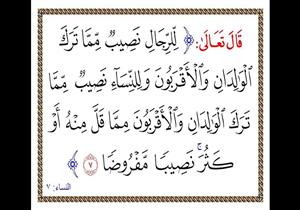 قَالَ تَعَالَىٰ: ﴿ لِّلرِّجَالِ نَصِيبٌ مِّمَّا تَرَكَ
ٱلْوَٰلِدَانِ وَٱلْأَقْرَبُونَ وَلِلنِّسَآءِ نَصِيبٌ مِّمَّا
تَرَكَ ٱلْوَٰلِدَانِ وَٱلْأَقْرَبُونَ مِمَّا قَلَّ مِنْهُ أَوْ
كَثُرَ ۚ نَصِيبًا مَّفْرُوضًا ٧ ﴾
النساء: ٧